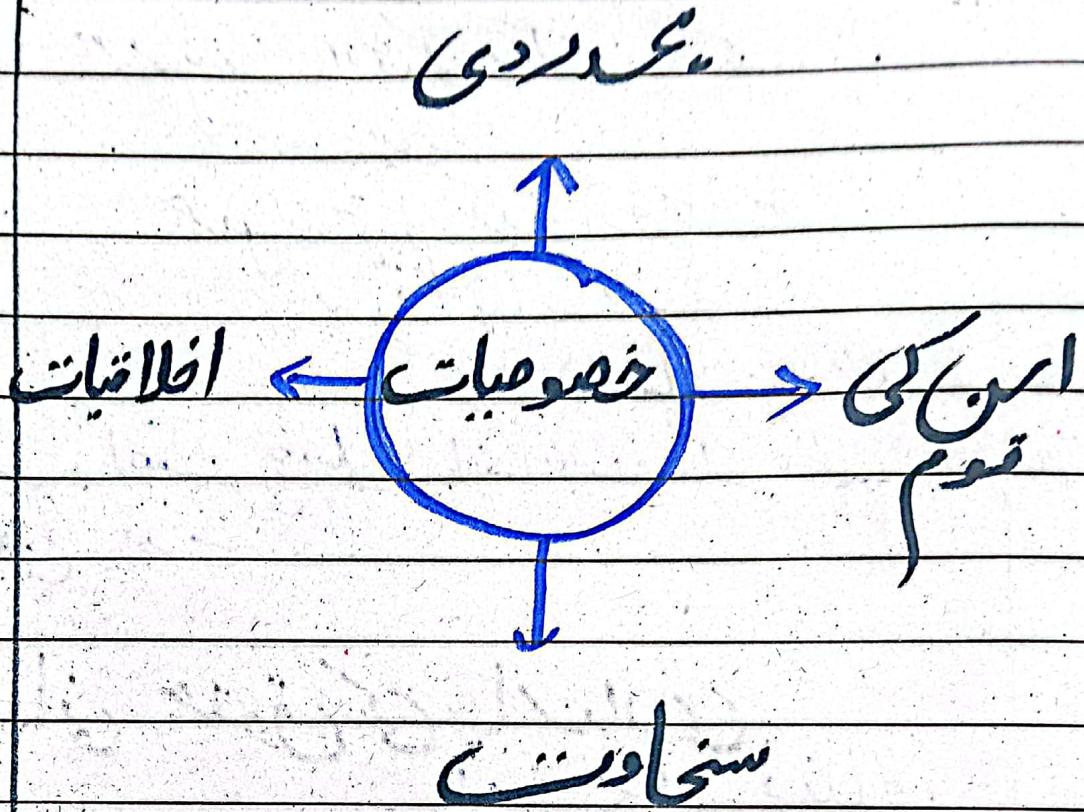 ہمدردی
اخلاقیات
خصوصیات
اس کی
قوم
سخاوت